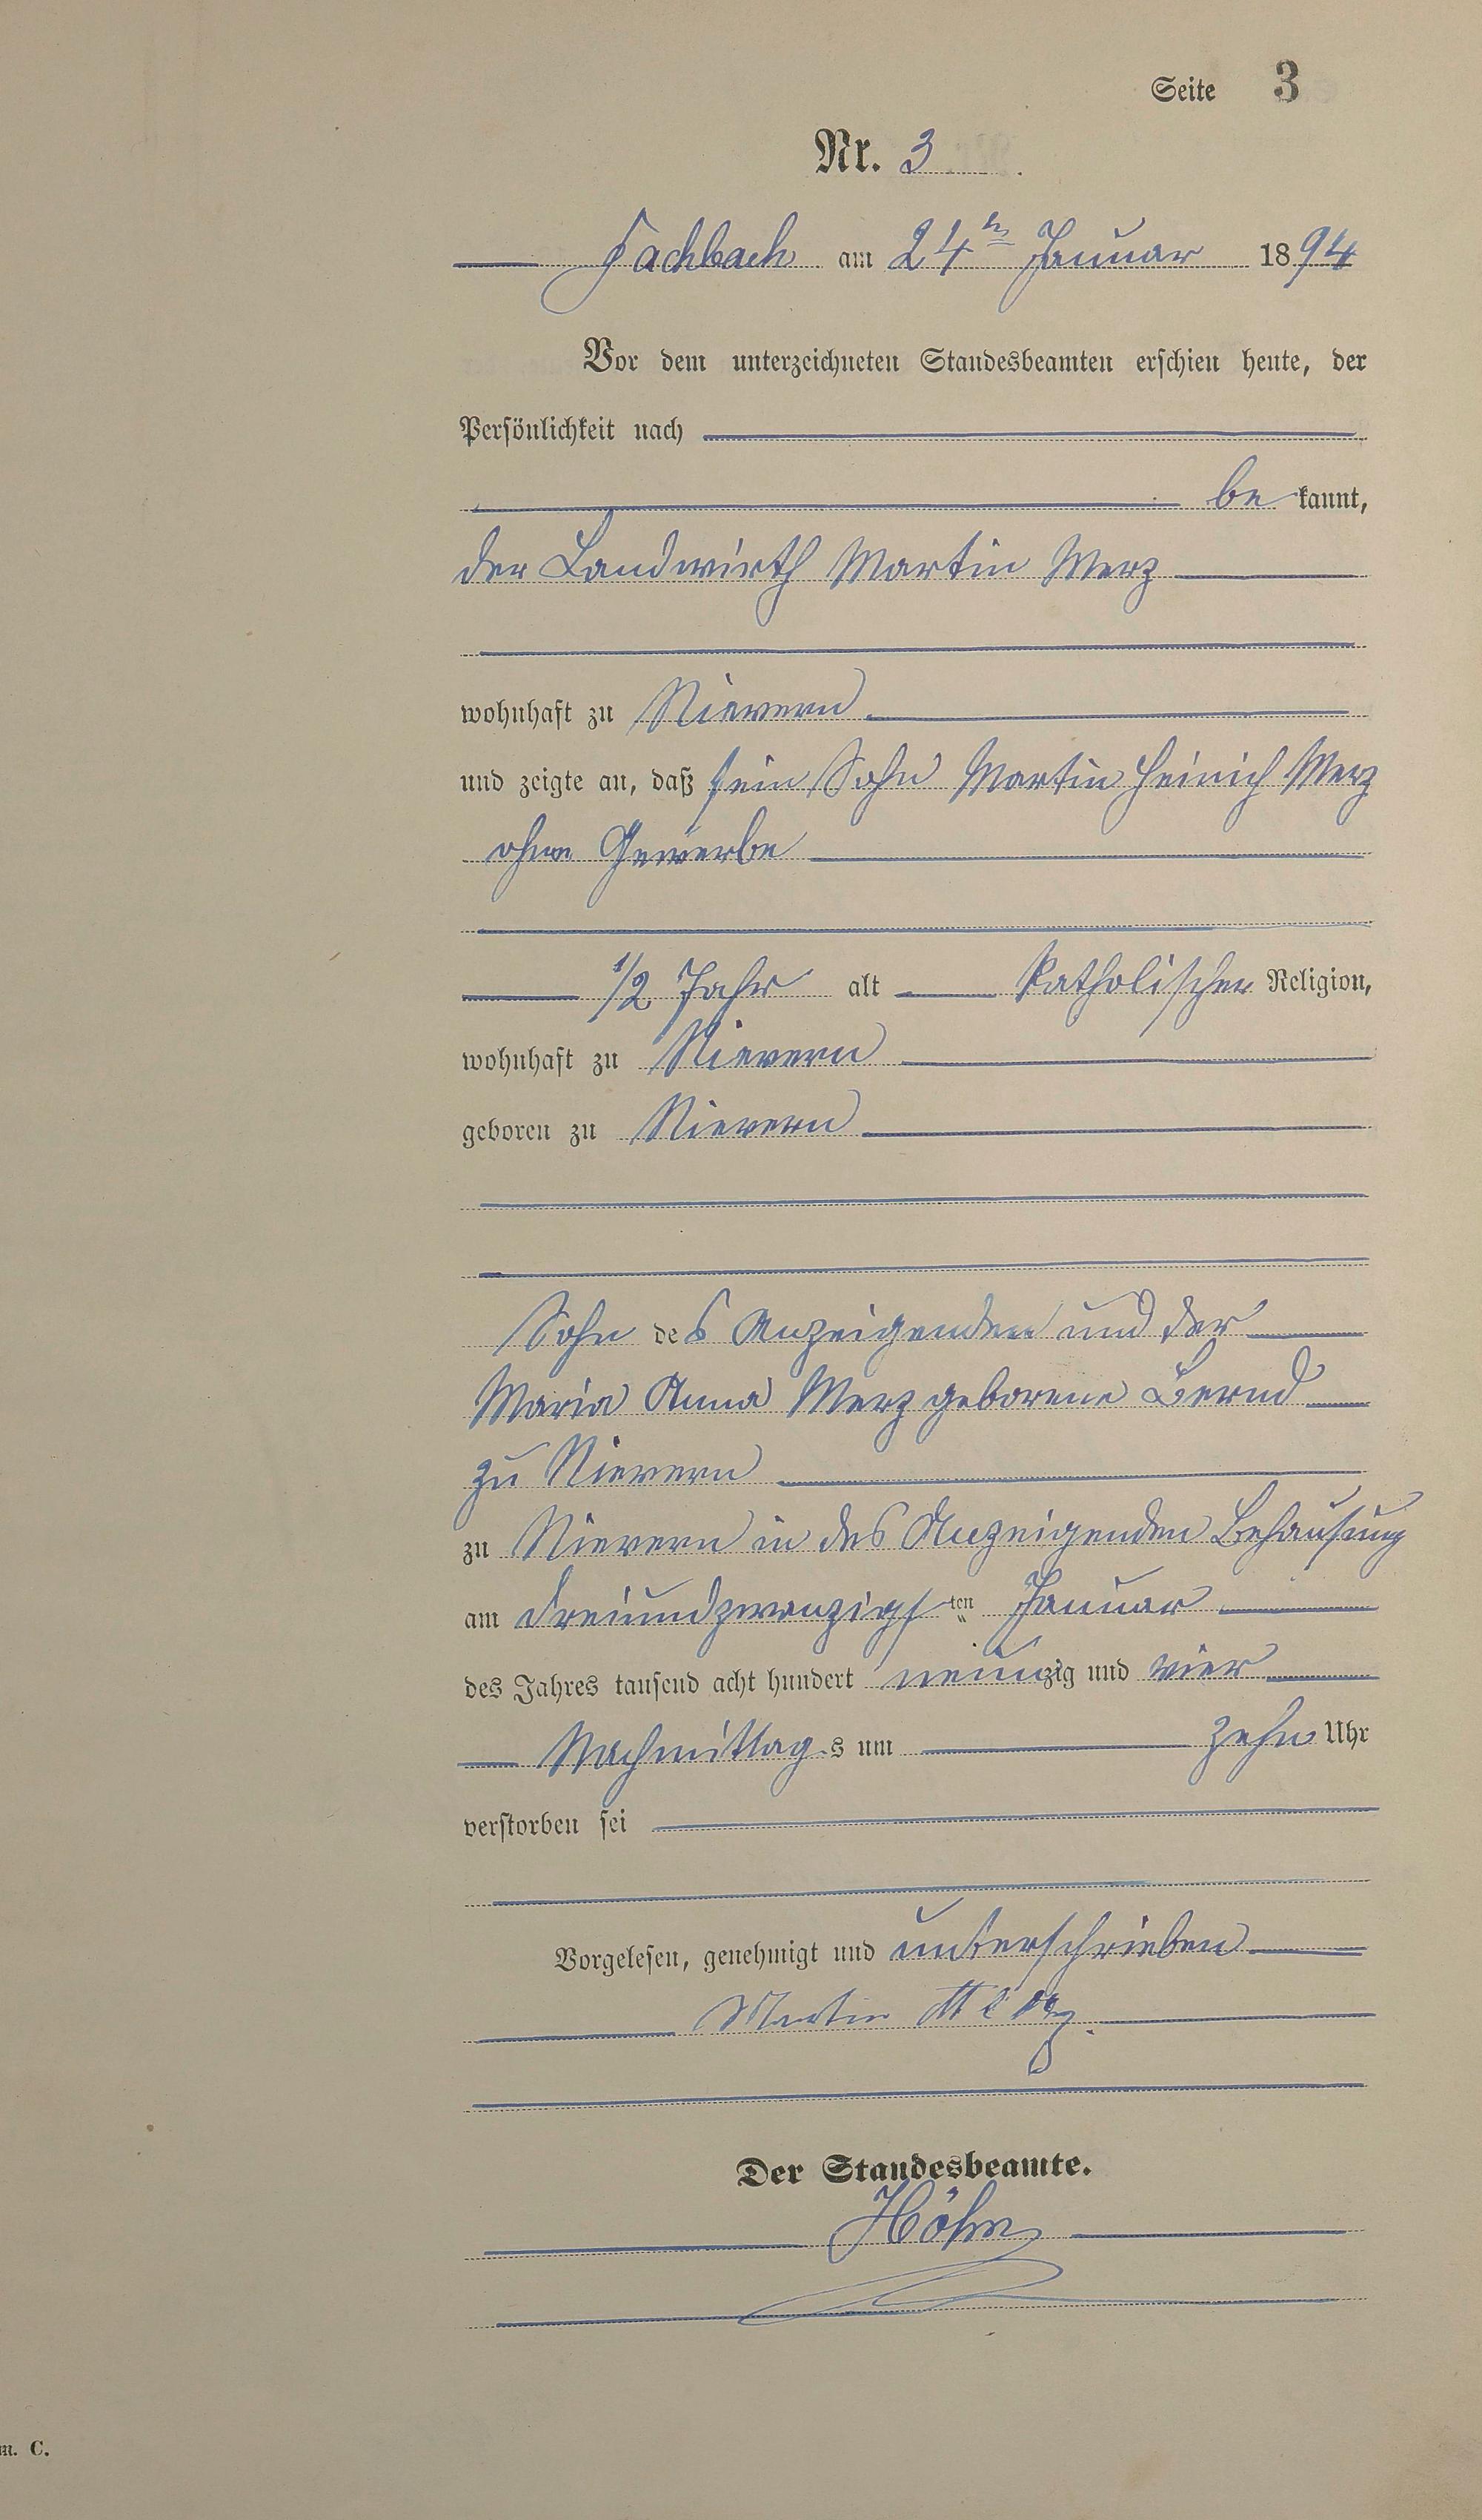 Seite 3
Nr. 3
Fachbach am 24ten Januar 1894
Vor dem unterzeichneten Standesbeamten erschien heute, der
Persönlichkeit nach
bekannt,
der Landwirth Martin Merz
wohnhaft zu Nievern
und zeigte an, daß sein Sohn Martin Heinrich Merz
ohne Gewerbe
1/2 Jahr alt katholischer Religion,
wohnhaft zu Nievern
geboren zu Nievern
Sohn des Anzeigenden und der
Maria Anna Merz geborene Bernd
zu Nievern
zu Nievern in des Anzeigenden Behausung
am dreiundzwanzigsten Januar
des Jahres tausend acht hundert neunzig und vier
Nachmittags um zehn Uhr
verstorben sei
Vorgelesen, genehmigt und unterschrieben
Martin Merz.
Der Standesbeamte.
Höhn
m. C.